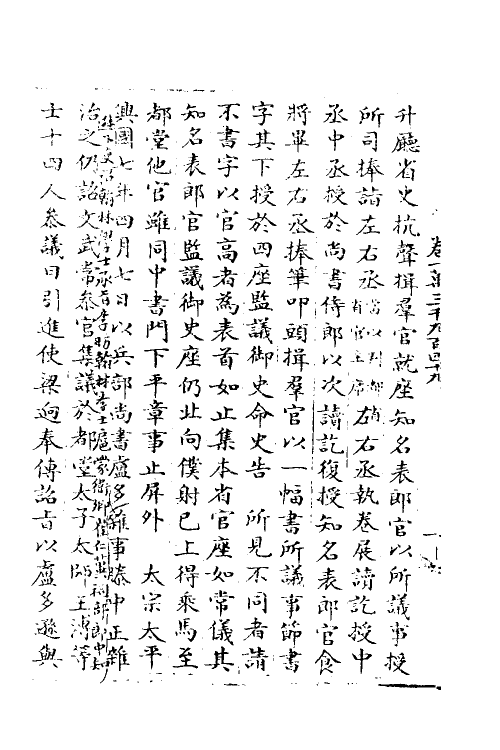 卷一萬三千九百四十九
升廳省史抗聲揖羣官就座知名表郎官以所議事授
所司捧詣左右丞 左右丞執卷展讀訖授中
丞中丞授於尚書侍郎以次讀訖復授知名表郎官食
將畢左右丞捧筆叩頭揖羣官以一幅書所議事節書
字其下授於四座監議御史命史告 所見不同者請
不書字以官高者為表首如止集本省官座如常儀其
知名表郎官監議御史座仍北向僕射已上得乘馬至
都堂他官雖同中書門下平章事止屏外 太宗太平
興國七年四月七日以兵部尚書盧多遜事
治之仍詔文武常參官集議於都堂太子太師王溥等
士十四人參議曰引進使梁迥奉傳詔旨以盧多遜與